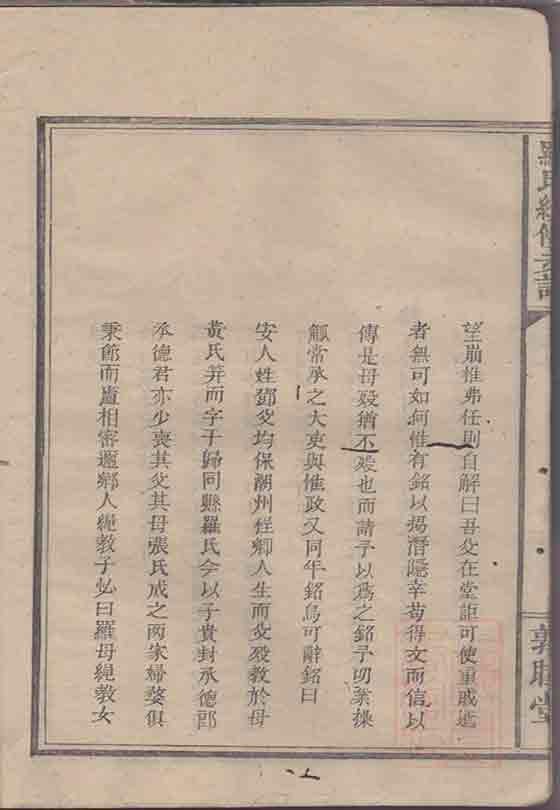 羅氏續修支譜
敦睦堂
望崩摧弗任則自解曰吾父在堂詎可使重戚逝
者無可如何惟有銘以揚潛隱幸苟得文而信以
傳是母歿猶不歿也而請予以為之銘予叨業操
觚常承之大吏與惟政又同年銘烏可辭銘曰
安人姓鄧父均保潮州程鄉人生而父歿教於母
黃氏笄而字子歸同縣羅氏今以子貴封承德郎
承德君亦少喪其父其母張氏成之兩家婦婺俱
秉節而廬相密邇鄉人繩教子必曰羅母繩教女